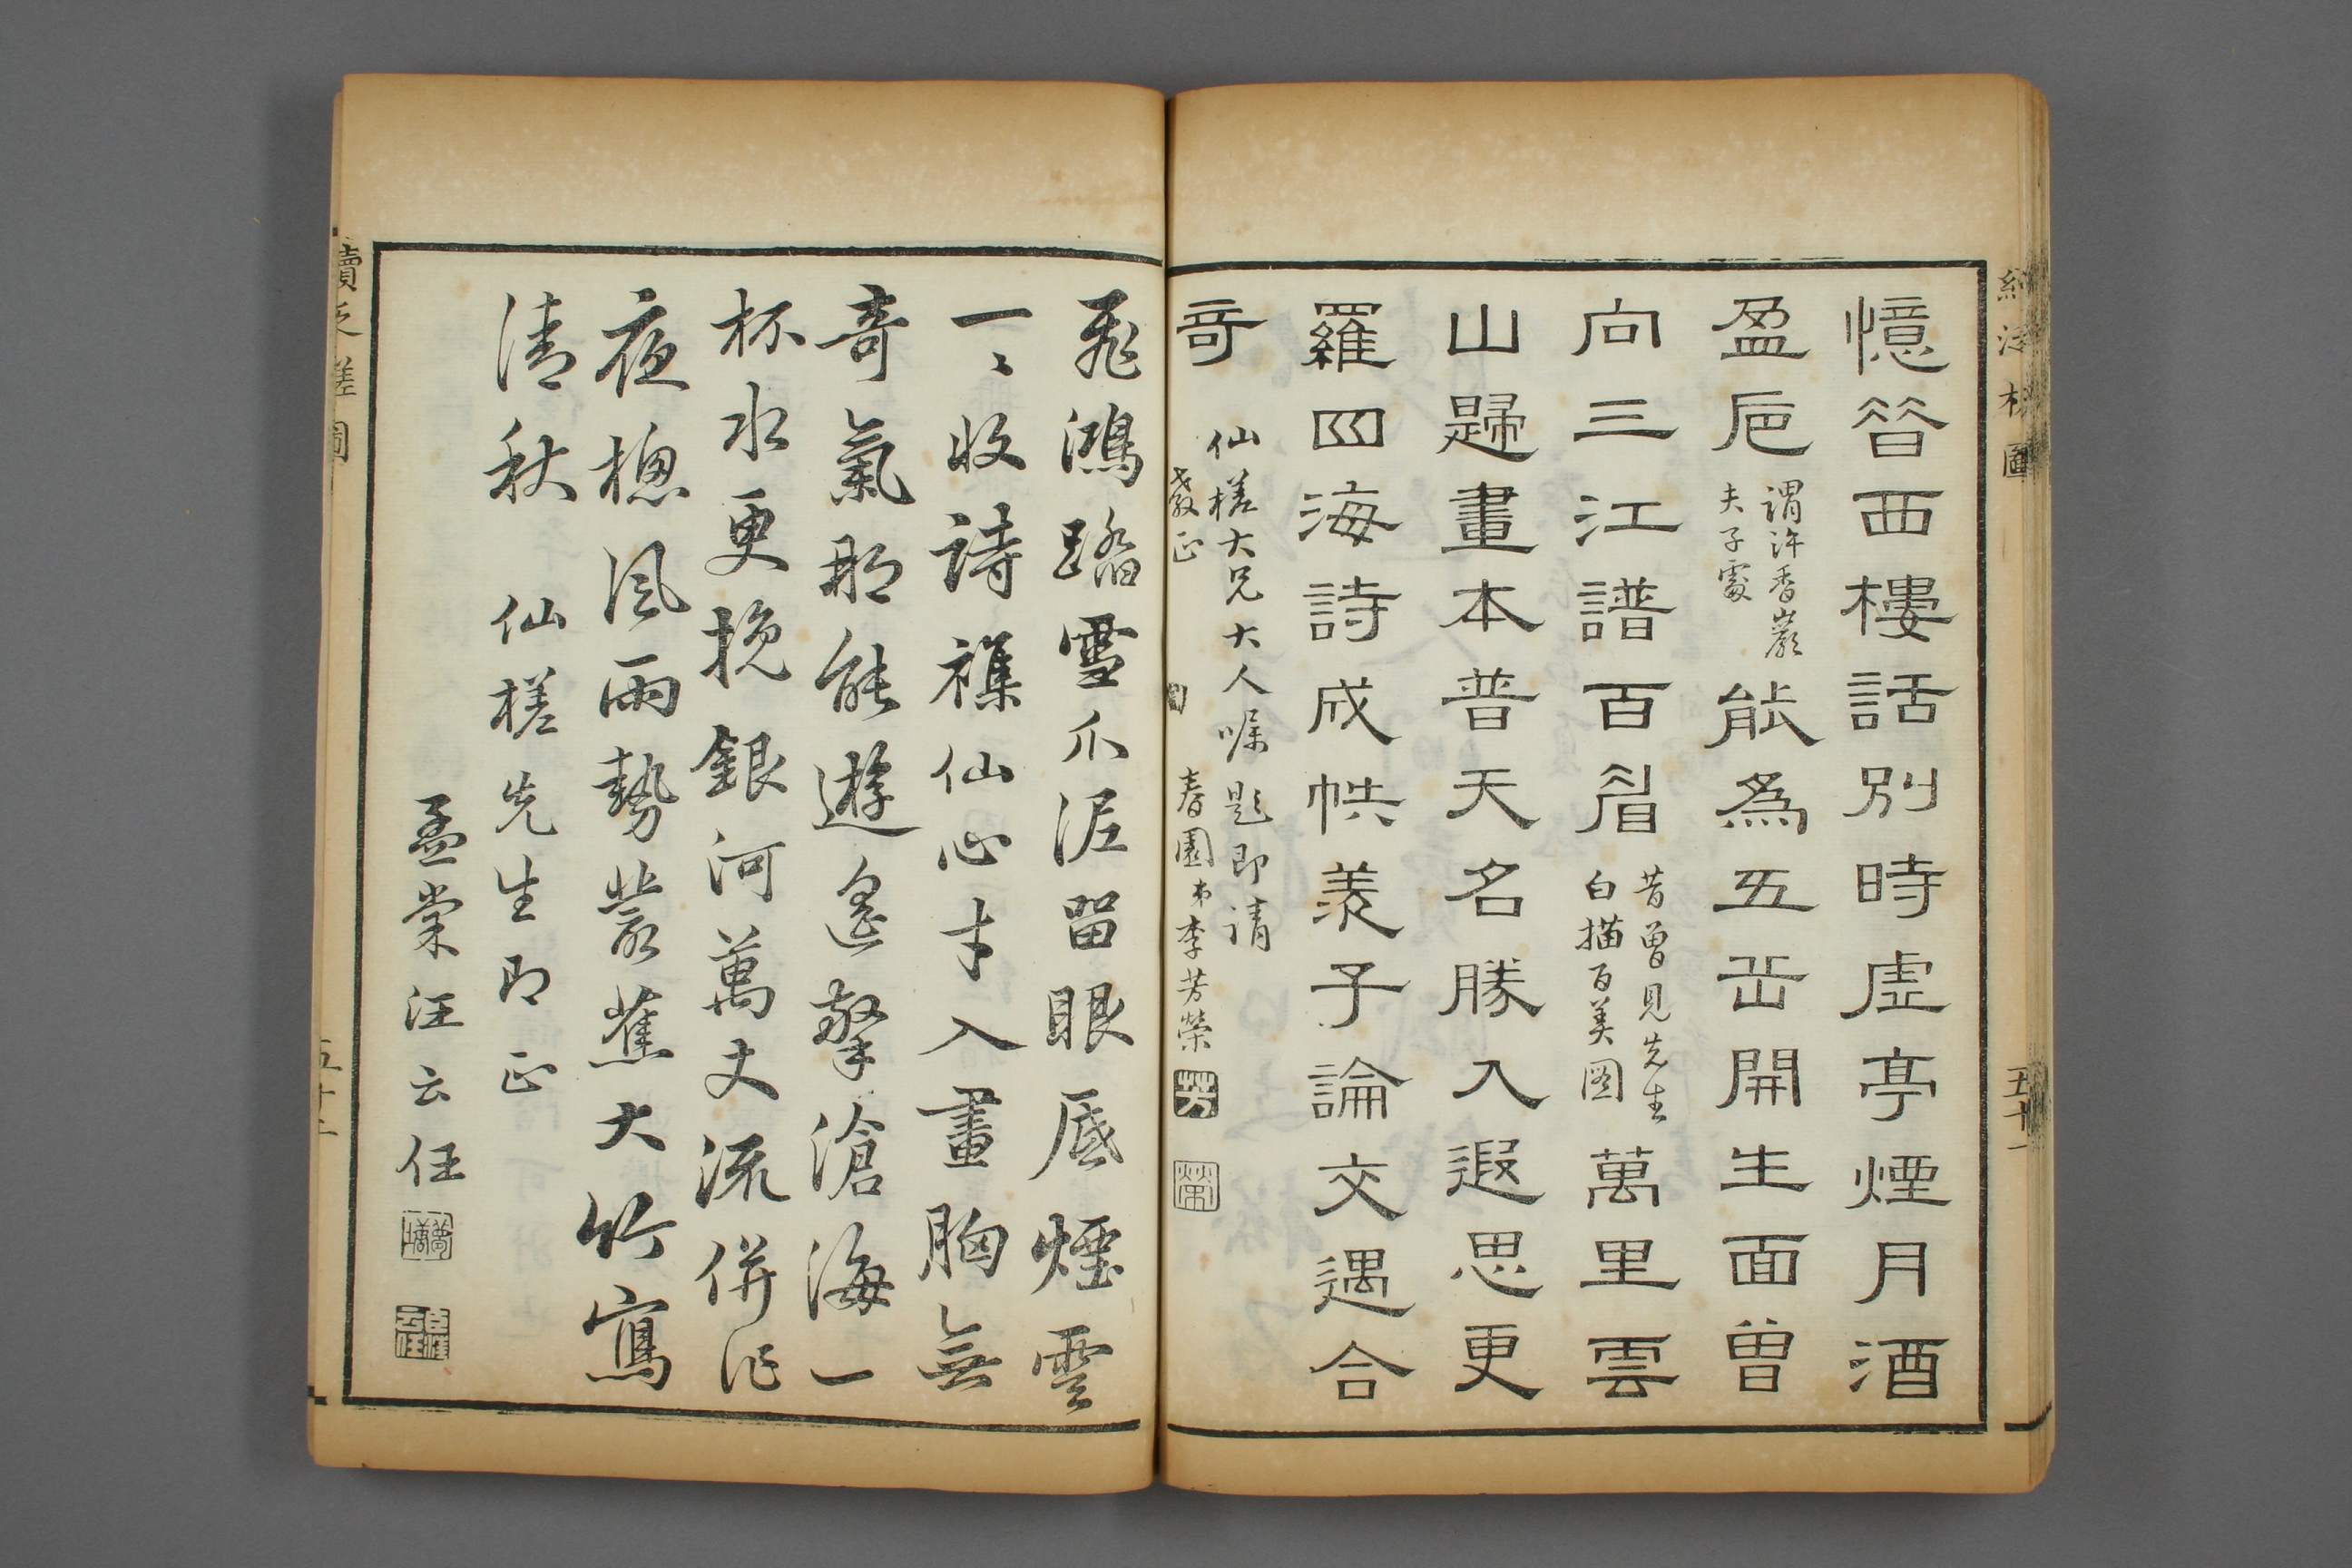 憶昝西樓話別時虛亭煙月酒
盈巵
謂許香巖
夫子處
能爲五岳開生面曾
向三江譜百眉
昔曾見先生
白描百美図
萬里雲
山歸畫本普天名勝入遐思更
羅四海詩成帙羨子論交遇合
奇
仙槎大兄大人嘱題即请
教正
春園弟李芳榮
芳
榮
五十一
飛鴻踏雪爪泥留眼底煙雲
一、收詩襍仙心才入畫胸無
奇氣那能遊遙擎滄海一
杯水更挽銀河萬丈流併作
夜牕風雨勢叢蕉大竹寫
清秋
仙槎先生即正
孟棠汪云任
臣汪云任
續泛槎圖
五十二